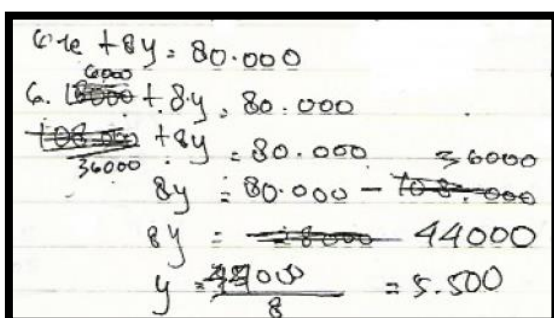 6x + 8y = 80.000
6. 6000 + 8y = 80.000
36000 + 8y = 80.000
8y = 80.000 - 36000
8y = 44000
y = 44000/8 = 5.500